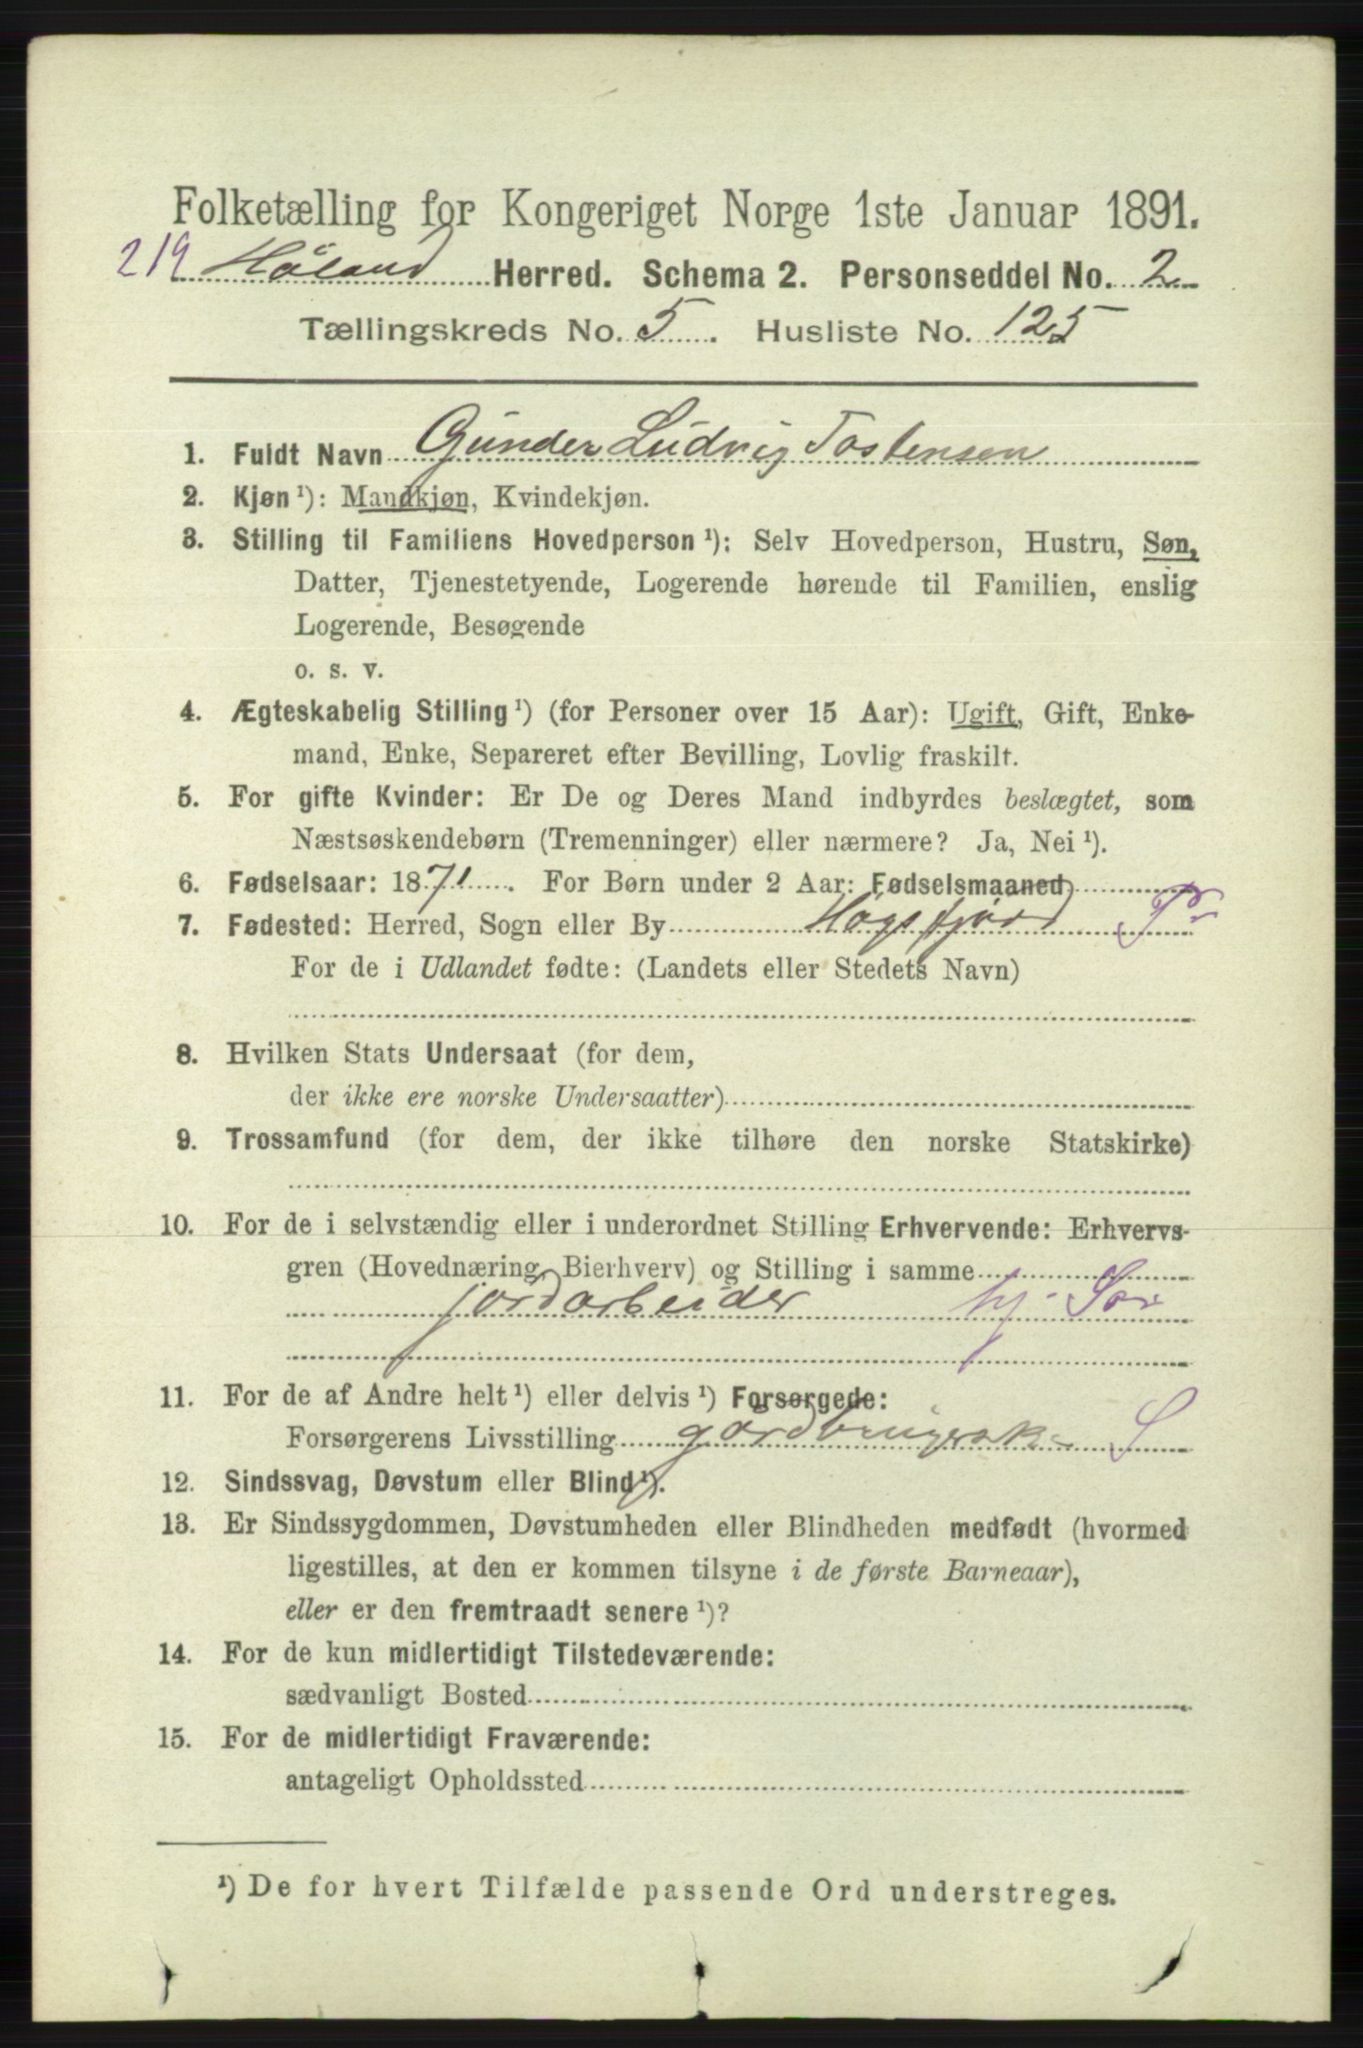 Folketælling for Kongeriget Norge 1ste Januar 1891.
219 Höland Herred. Schema 2. Personseddel No. 2
Tællingskreds No. 5. Husliste No. 125
1. Fuldt Navn Gunder Ludvig Tostensen
2. Kjøn ¹): Mandkjøn, Kvindekjøn.
3. Stilling til Familiens Hovedperson ¹): Selv Hovedperson, Hustru, Søn,
Datter, Tjenestetyende, Logerende hørende til Familien, enslig
Logerende, Besøgende
o. s. v.
4. Ægteskabelig Stilling ¹) (for Personer over 15 Aar): Ugift, Gift, Enke-
mand, Enke, Separeret efter Bevilling, Lovlig fraskilt.
5. For gifte Kvinder: Er De og Deres Mand indbyrdes beslægtet, som
Næstsøskendebørn (Tremenninger) eller nærmere? Ja, Nei ¹).
6. Fødselsaar: 1871. For Børn under 2 Aar: Fødselsmaaned
7. Fødested: Herred, Sogn eller By Högsfjord
For de i Udlandet fødte: (Landets eller Stedets Navn)
8. Hvilken Stats Undersaat (for dem,
der ikke ere norske Undersaatter)
9. Trossamfund (for dem, der ikke tilhøre den norske Statskirke)
10. For de i selvstændig eller i underordnet Stilling Erhvervende: Erhvervs-
gren (Hovednæring, Bierhverv) og Stilling i samme
jordarbeider hj. Søn
11. For de af Andre helt ¹) eller delvis ¹) Forsørgede:
Forsørgerens Livsstilling S
12. Sindssvag, Døvstum eller Blind ¹).
13. Er Sindssygdommen, Døvstumheden eller Blindheden medfødt (hvormed
ligestilles, at den er kommen tilsyne i de første Barneaar),
eller er den fremtraadt senere ¹)?
14. For de kun midlertidigt Tilstedeværende:
sædvanligt Bosted
15. For de midlertidigt Fraværende:
antageligt Opholdssted
¹) De for hvert Tilfælde passende Ord understreges.